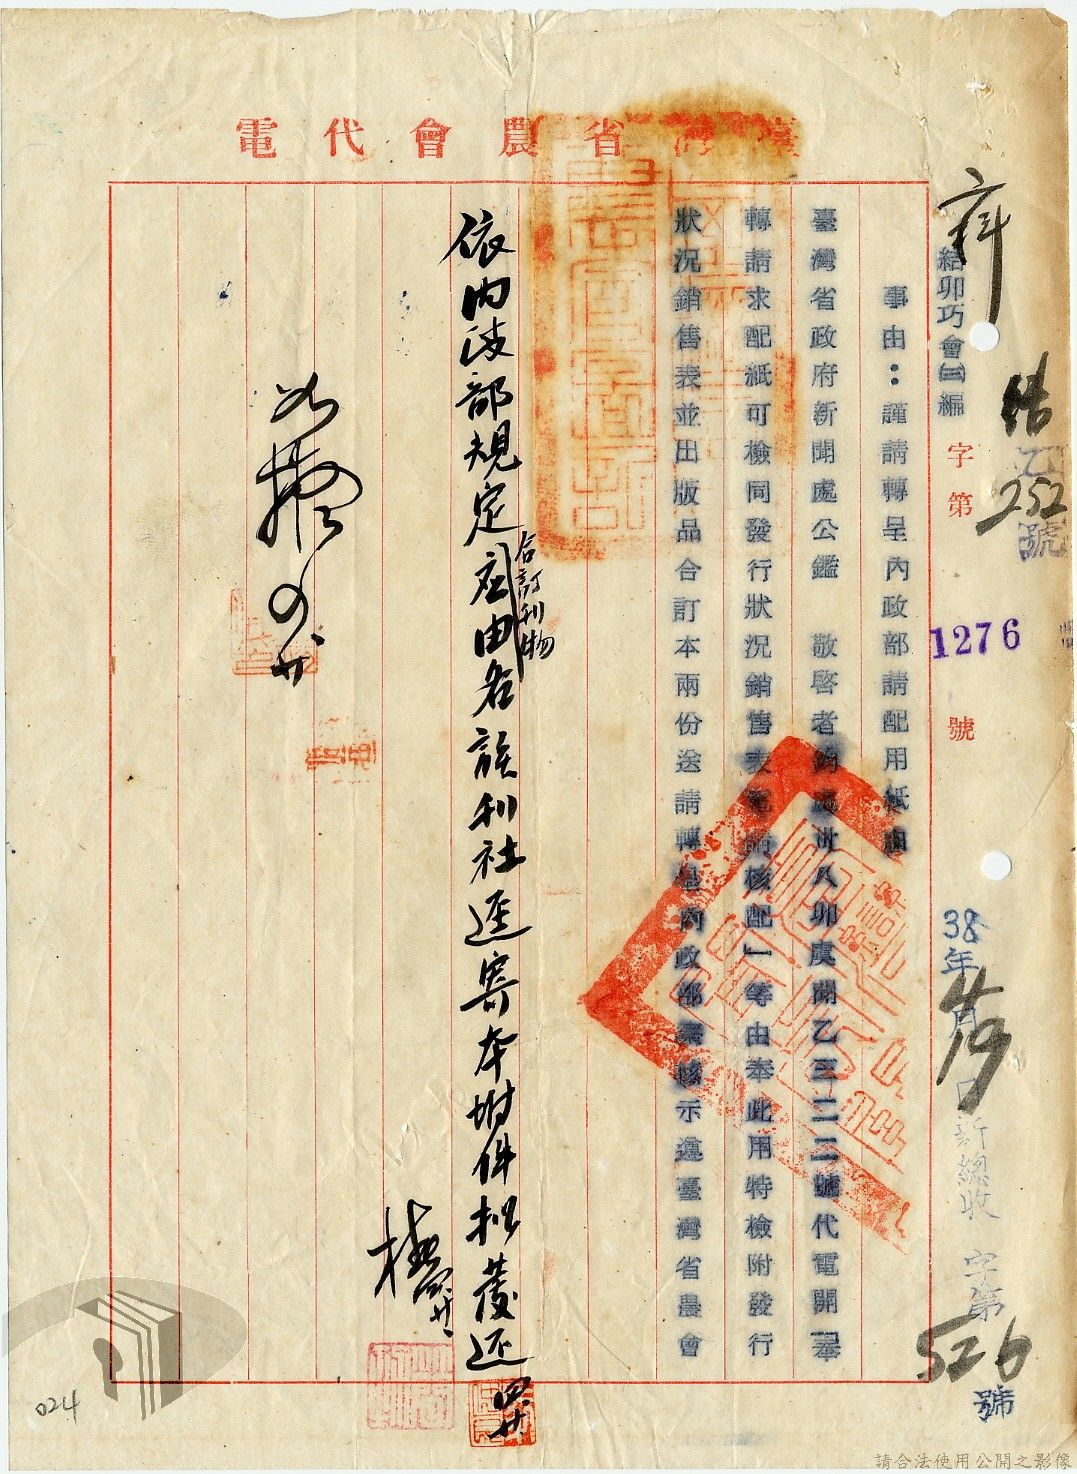 臺灣省農會代電
結卯巧會㈢編
字第
1276
號
事由：謹請轉呈內政部請配用紙由
臺灣省政府新聞處公鑑 敬啓者鈞處卅八卯虞聞乙三二二號代電開「奉
轉請求配紙可檢同發行狀況銷售表電請核配」等由奉此用特檢附發行
狀況銷售表並出版品合訂本兩份送請轉呈內政部彙核示遵臺灣省農會
38年 月 日
新總收 字第526號
252
號
合訂刊物
依內政部規定應由各該刊社逕寄本附件擬發還
四廿
如擬
024
請合法使用公開之影像